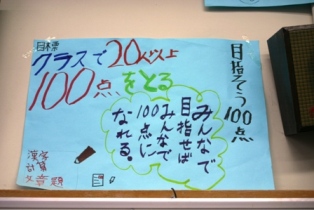 目指そう100点
目標
クラスで20人以上
100点をとる
みんなで
目指せば
みんなで
100点に
なれる。
漢字
計算
文章題